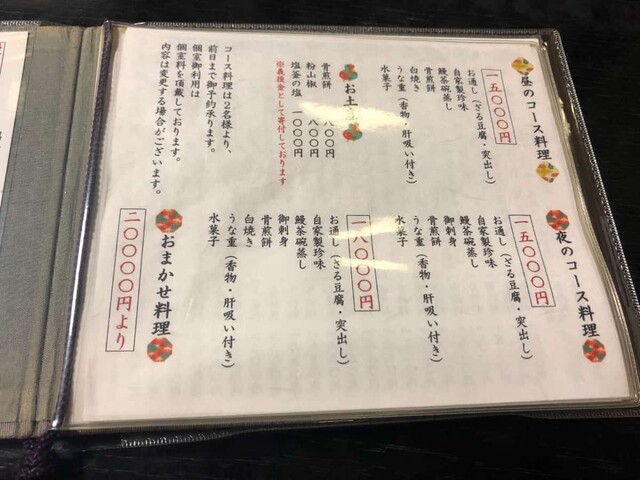 昼のコース料理
一五〇〇〇円
お通し（ざる豆腐・突出し）
自家製珍味
鰻茶碗蒸し
骨煎餅
白焼き
うな重（香物・肝吸い付き）
水菓子
お土産
骨煎餅 八〇〇円
粉山椒 八〇〇円
塩釜の塩 一〇〇〇円
※義援金として寄付しております
コース料理は２名様より、
前日まで御予約承ります。
個室御利用は
個室料を頂戴しております。
内容は変更する場合がございます。
夜のコース料理
一五〇〇〇円
お通し（ざる豆腐・突出し）
自家製珍味
鰻茶碗蒸し
御刺身
骨煎餅
うな重（香物・肝吸い付き）
水菓子
一八〇〇〇円
お通し（ざる豆腐・突出し）
自家製珍味
鰻茶碗蒸し
御刺身
骨煎餅
白焼き
うな重（香物・肝吸い付き）
水菓子
おまかせ料理
二〇〇〇〇円より